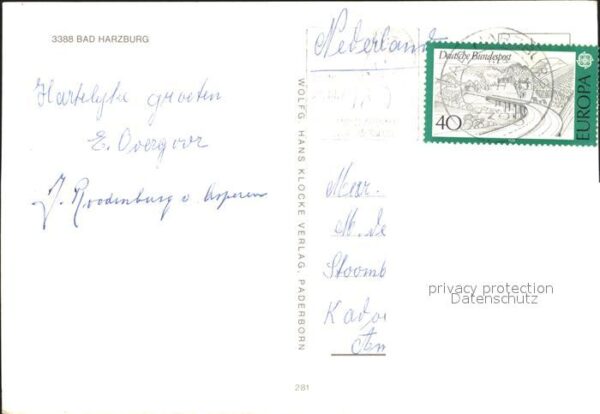 3388 BAD HARZBURG
Hartelijke groeten
E. Overgoor
J. Roodenburg v. Asperen
WOLFG. HANS KLOCKE VERLAG, PADERBORN
281
Nederland
Deutsche Bundespost
40
EUROPA
Mevr.
M. de
Stoomb
Kador
Am
privacy protection
Datenschutz